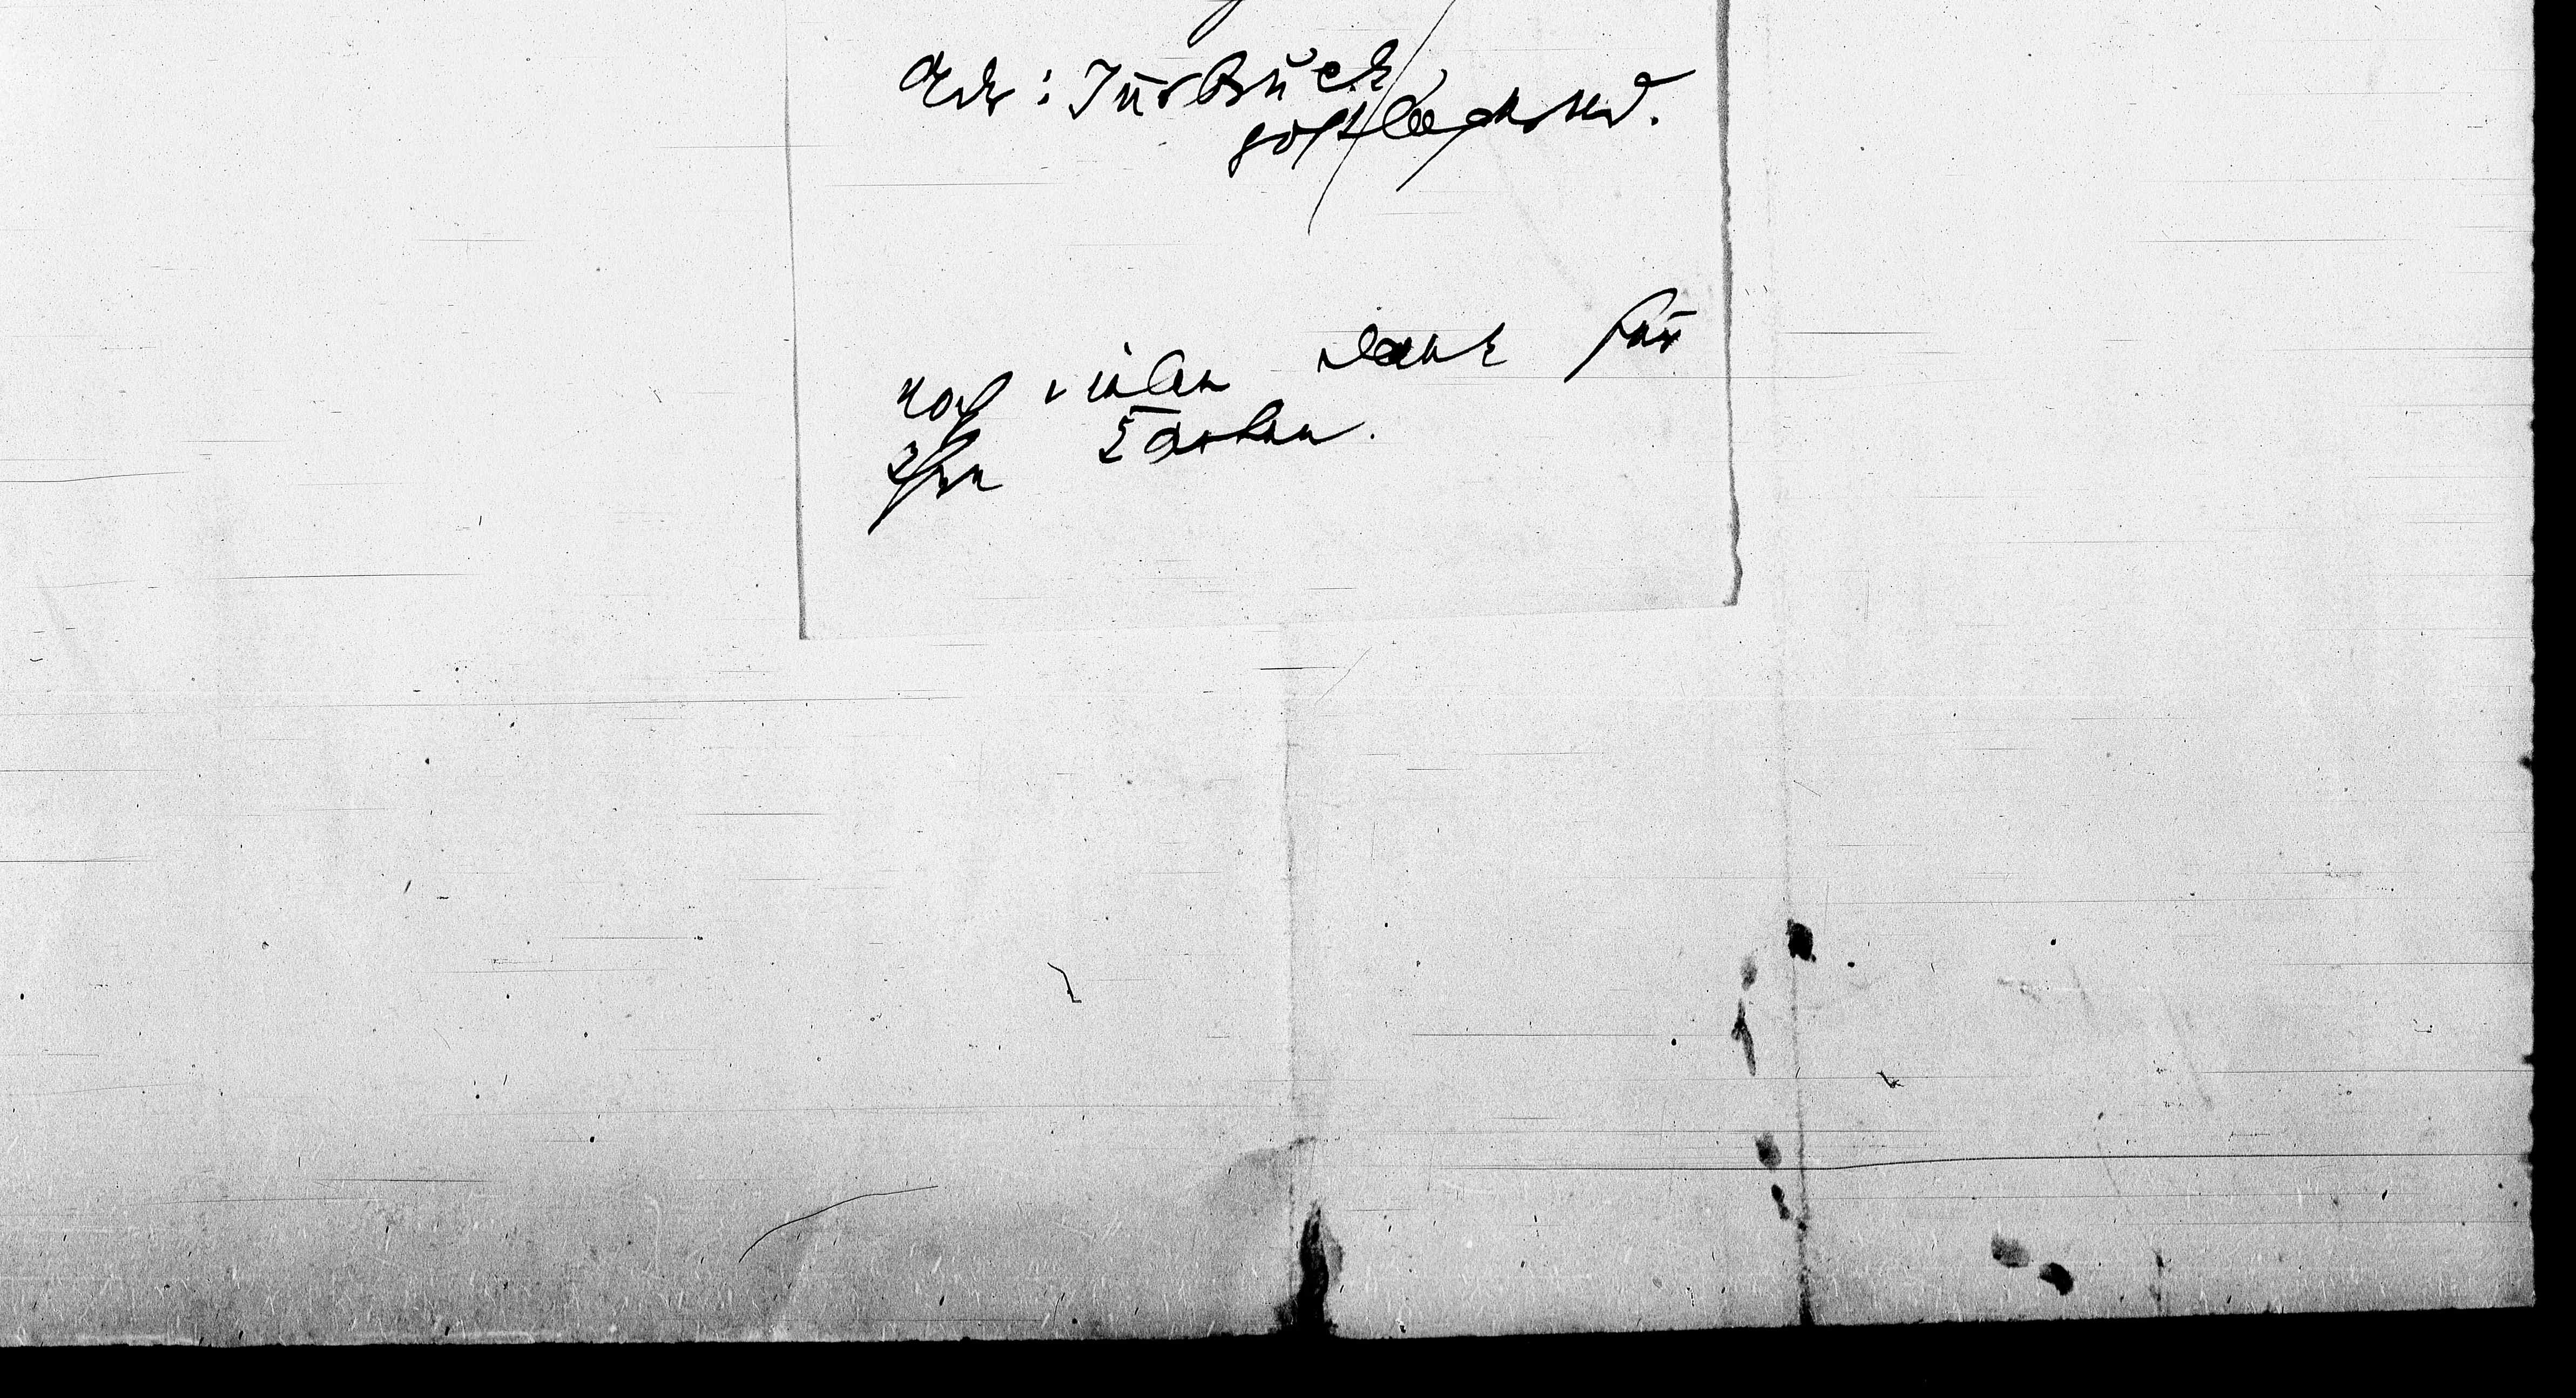 Adr: Insbruck
postlagernd.
Noch vielen Dank für
Ihre Karten.